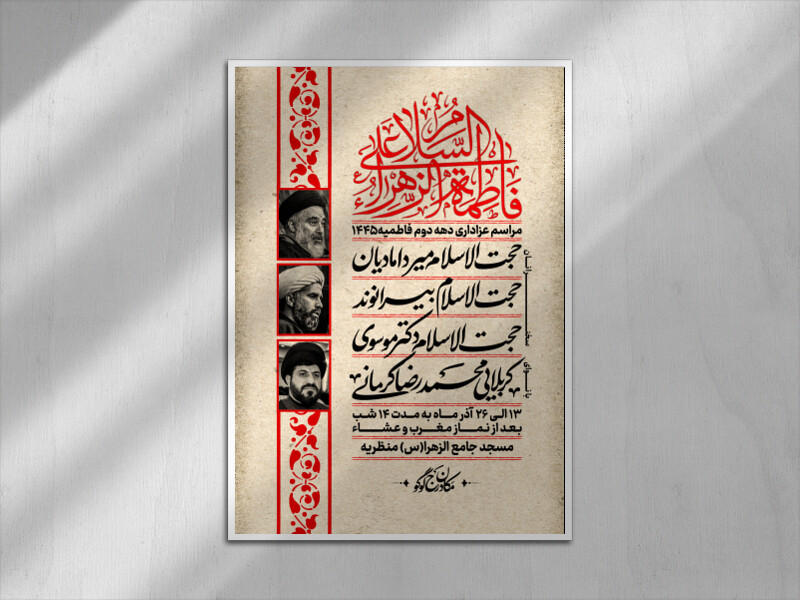 السلام علی
فاطمة الزهراء
مراسم عزاداری دهه دوم فاطمیه ۱۴۴۵
سخنرانان
حجت الاسلام میردامادیان
حجت الاسلام بیرانوند
حجت الاسلام دکتر موسوی
بانوای
کربلایی محمدرضا کرمانی
۱۳ الی ۲۶ آذر ماه به مدت ۱۴ شب
بعد از نماز مغرب و عشاء
مسجد جامع الزهرا(س) منظریه
مکان درج لوگو